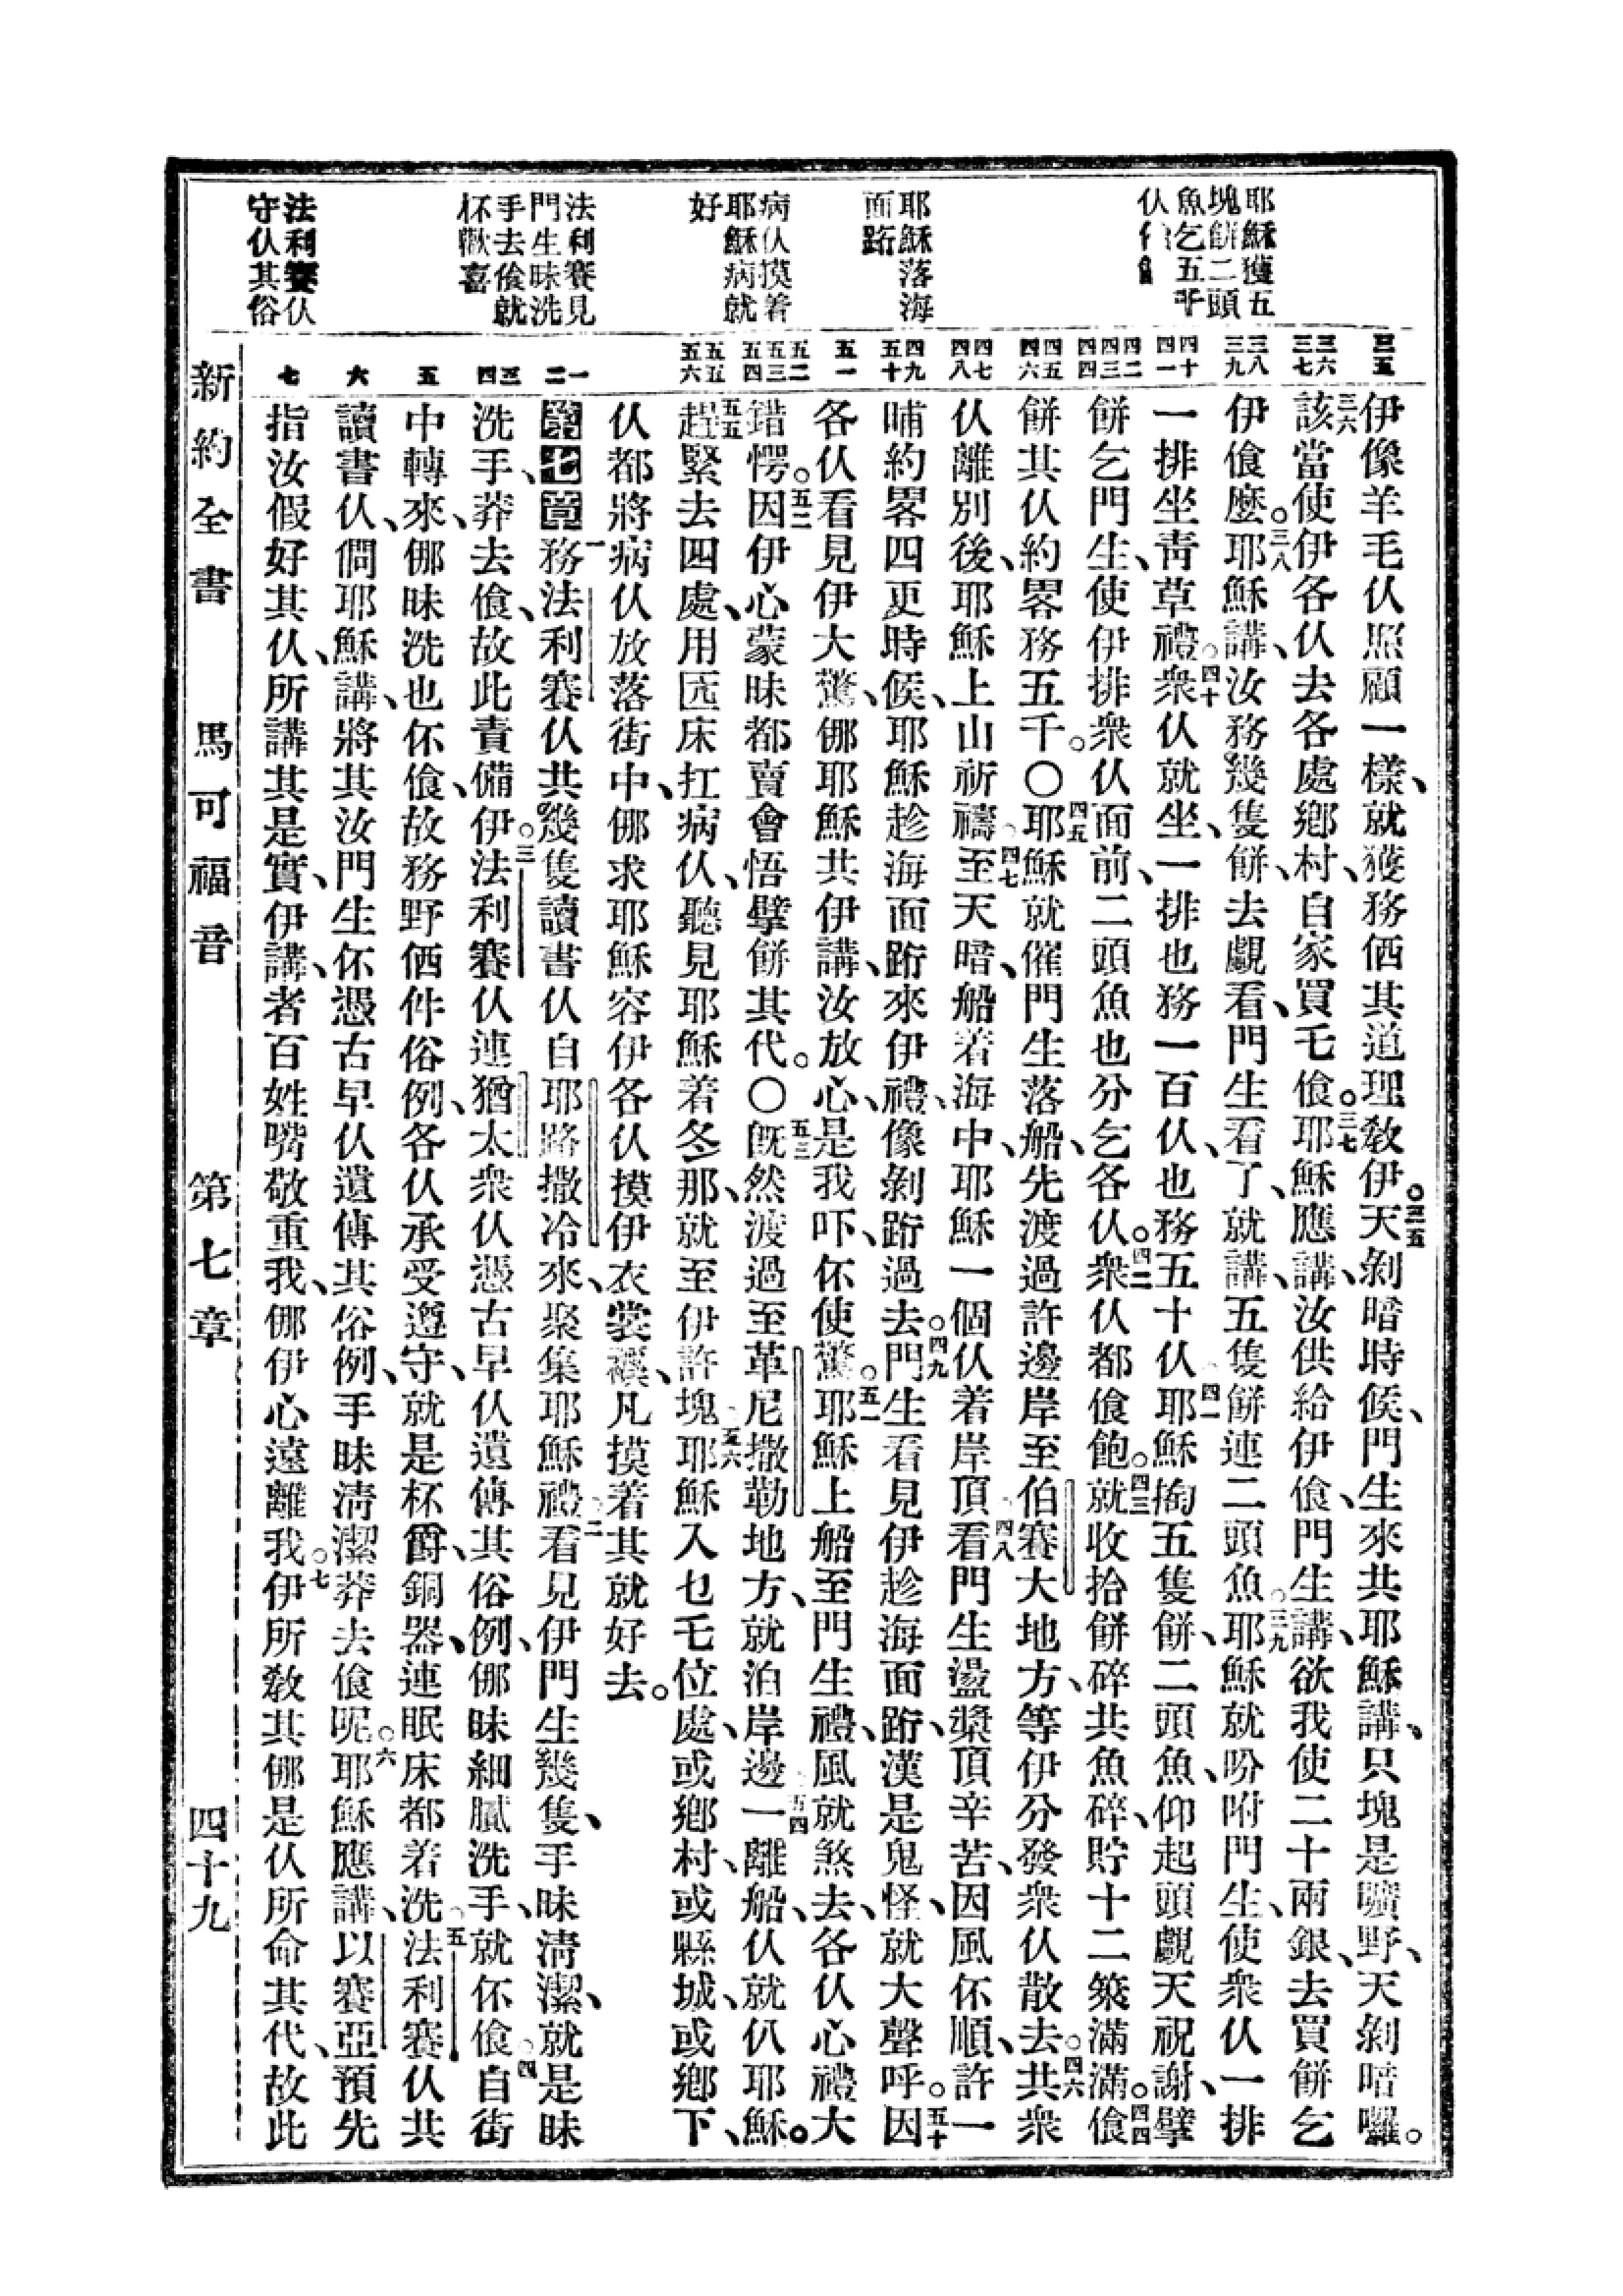 耶穌獲五
塊餅二頭
魚乞五千
仈
耶穌落海
面跲
病仈摸着
耶穌病就
好
法利賽見
門生昧洗
手去飡就
怀歡喜
法利賽仈
守仈其俗
三五
三六
三七
三八
三九
四十
四一
四二
四三
四四
四五
四六
四七
四八
四九
五十
五一
五二
五三
五四
五五
五六
一
二
三
四
五
六
七
伊像羊毛仈照顧一樣、就獲務価其道理教伊。三五天剝暗時候、門生來共耶穌講、只塊是曠野、天剝暗囉。
三六該當使伊各仈去各處鄉村、自家買乇飡。三七耶穌應講、汝供給伊飡、門生講、欲我使二十兩銀、去買餅乞
伊飡麼。三八耶穌講、汝務幾隻餅、去覷看、門生看了、就講、五隻餅連二頭魚。三九耶穌就吩咐門生、使衆仈一排
一排坐靑草禮。四十衆仈就坐、一排也務一百仈、也務五十仈。四一耶穌掏五隻餅、二頭魚、仰起頭覷天祝謝、擘
餅乞門生、使伊排衆仈面前、二頭魚也分乞各仈。四二衆仈都飡飽。四三就收拾餅碎共魚碎、貯十二籃滿滿。四四飡
餅其仈約畧務五千。〇四五耶穌就催門生落船、先渡過許邊岸至伯賽大地方、等伊分發衆仈散去。四六共衆
仈離別後、耶穌上山祈禱。四七至天暗、船着海中、耶穌一個仈着岸頂。四八看門生盪槳頂辛苦、因風怀順、許一
晡約畧四更時候、耶穌趁海面跲來伊禮、像剝跲過去。四九門生看見伊趁海面跲、漢是鬼怪、就大聲呼。五十因
各仈看見伊大驚、倻耶穌共伊講、汝放心、是我吓、怀使驚。五一耶穌上船至門生禮、風就煞去、各仈心禮大
錯愕。五二因伊心蒙昧都賣會悟擘餅其代。〇五三旣然渡過至革尼撒勒地方、就泊岸邊。五四一離船、仈就仈耶穌。
五五趕緊去四處、用匟床扛病仈、聽見耶穌着冬那、就至伊許塊。五六耶穌入乜乇位處、或鄉村、或縣城、或鄉下、
仈都將病仈放落街中、倻求耶穌容伊各仈摸伊衣裳䙓、凡摸着其就好去。
第七章一務法利賽仈共幾隻讀書仈自耶路撒冷來、聚集耶穌禮。二看見伊門生幾隻、手昧淸潔、就是昧
洗手、莽去飡、故此責備伊。三法利賽仈連猶太衆仈憑古早仈遺傳其俗例、倻昧細膩洗手、就怀飡。四自街
中轉來、倻昧洗也怀飡、故務野価件俗例、各仈承受遵守、就是杯爵、銅器、連眠床都着洗。五法利賽仈共
讀書仈、倜耶穌講、將其汝門生怀憑古早仈遺傳其俗例、手昧淸潔莽去飡呢。六耶穌應講、以賽亞預先
指汝假好其仈、所講其是實、伊講、者百姓嘴敬重我、倻伊心遠離我。七伊所教其倻是仈所命其代、故此
新約全書　馬可福音　第七章　四十九